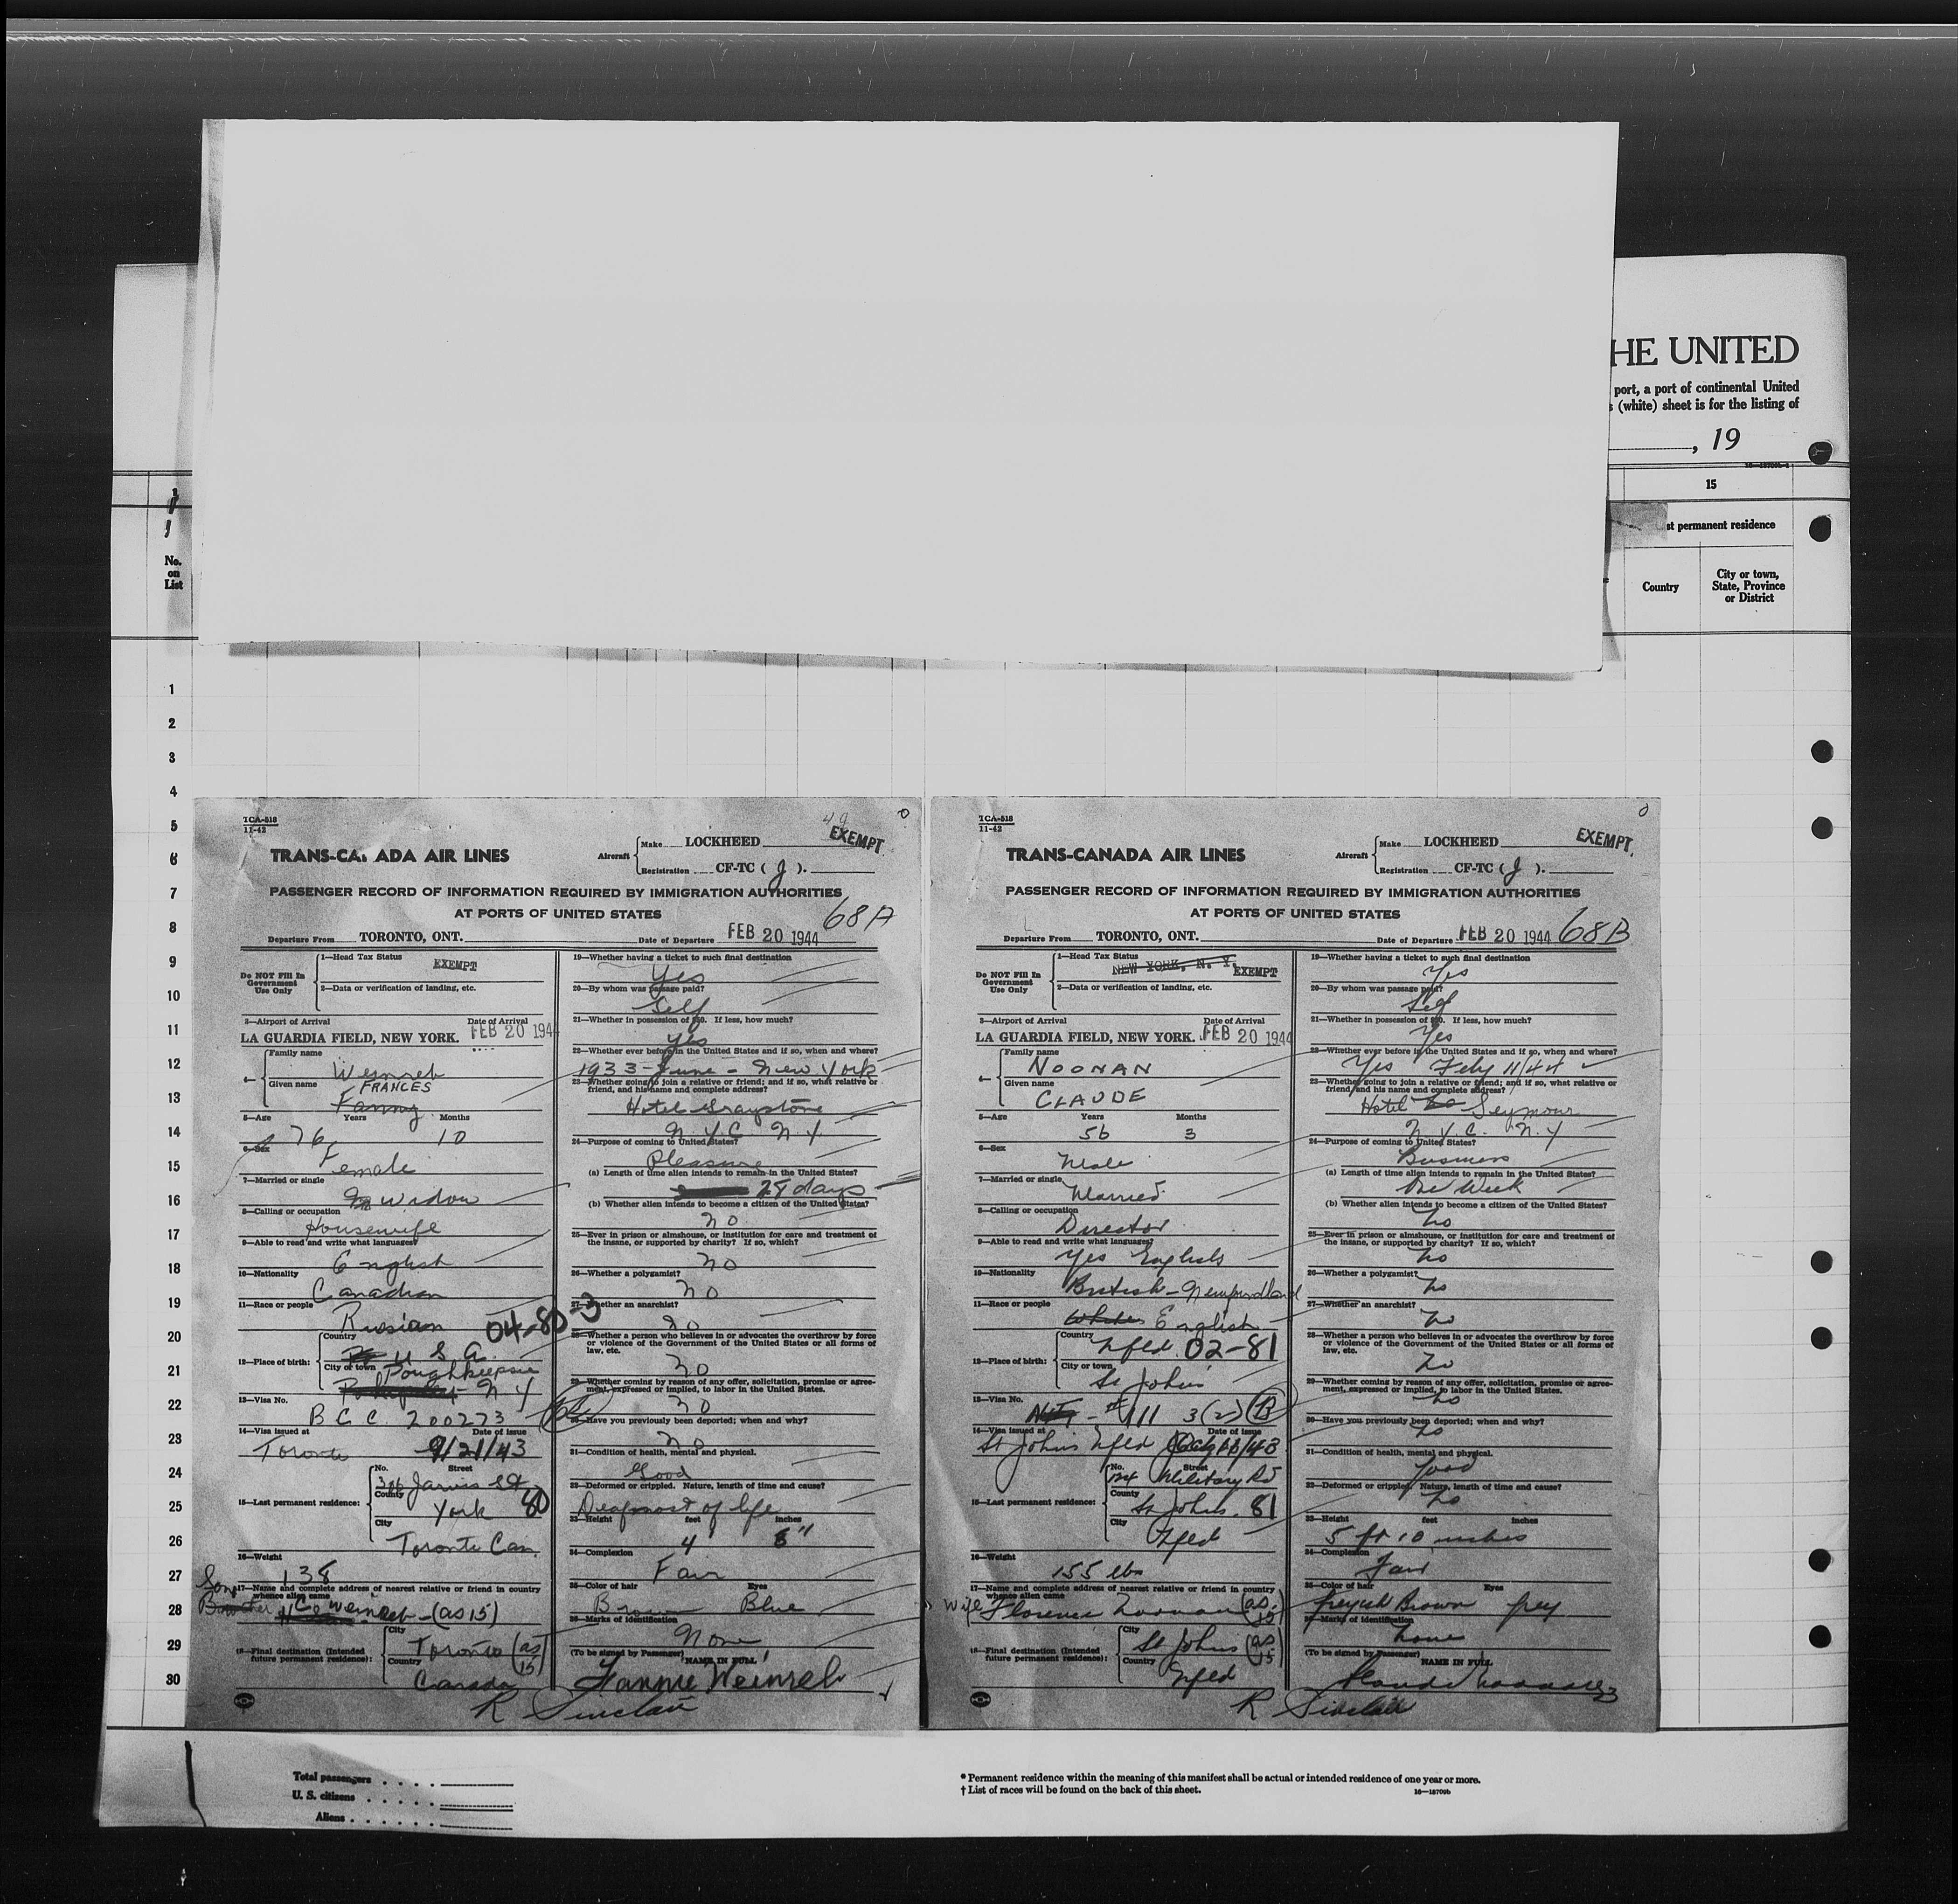 HE UNITED
port, a port of continental United
(white) sheet is for the listing of
, 19
15
st permanent residence
No.
on
List
Country
City or town,
State, Province
or District
1
2
3
4
5
6
7
8
9
10
11
12
13
14
15
16
17
18
19
20
21
22
23
24
25
26
27
28
29
30
TCA-518
11-42
49
EXEMPT
TRANS-CA ADA AIR LINES
Aircraft
Make LOCKHEED
Registration CF-TC ( J ).
PASSENGER RECORD OF INFORMATION REQUIRED BY IMMIGRATION AUTHORITIES
AT PORTS OF UNITED STATES
68A
Departure From TORONTO, ONT. Date of Departure FEB 20 1944
Do NOT Fill In
Government
Use Only
1—Head Tax Status EXEMPT
2—Data or verification of landing, etc.
3—Airport of Arrival Date of Arrival
LA GUARDIA FIELD, NEW YORK. FEB 20 194
4—
Family name
Weinreb
Given name FRANCES
Fanny
5—Age Years Months
76 10
6—Sex
Female
7—Married or single
Widow
8—Calling or occupation
Housewife
9—Able to read and write what languages
English
10—Nationality
Canadian
11—Race or people
Russian 04-80-3
12—Place of birth:
Country
U S A.
City or town Poughkeepsie
N Y
13—Visa No.
B C C. 200273
14—Visa issued at Date of issue
Toronto 9/21/43
15—Last permanent residence:
No. Street
Jarvis St
County
York 80
City
Toronto Can.
16—Weight
138
17—Name and complete address of nearest relative or friend in country
whence alien came
Son
Weinreb - (as 15)
18—Final destination (Intended
future permanent residence):
City
Toronto (as 15)
Country
Canada
19—Whether having a ticket to such final destination
Yes
20—By whom was passage paid?
Self
21—Whether in possession of $50. If less, how much?
Yes
22—Whether ever before in the United States and if so, when and where?
1933-June - New York
23—Whether going to join a relative or friend; and if so, what relative or
friend, and his name and complete address?
Hotel Graystone
N.Y.C N.Y
24—Purpose of coming to United States?
Pleasure
(a) Length of time alien intends to remain in the United States?
28 days
(b) Whether alien intends to become a citizen of the United States?
no
25—Ever in prison or almshouse, or institution for care and treatment of
the insane, or supported by charity? If so, which?
no
26—Whether a polygamist?
no
27—Whether an anarchist?
no
28—Whether a person who believes in or advocates the overthrow by force
or violence of the Government of the United States or all forms of
law, etc.
no
29—Whether coming by reason of any offer, solicitation, promise or agree-
ment, expressed or implied, to labor in the United States.
no
30—Have you previously been deported; when and why?
no
31—Condition of health, mental and physical.
Good
32—Deformed or crippled. Nature, length of time and cause?
Deaf most of life
33—Height feet inches
4 8"
34—Complexion
Fair
35—Color of hair Eyes
Brown Blue
36—Marks of identification
None
(To be signed by Passenger)
NAME IN FULL
Fannie Weinreb
R Sinclair
TCA-518
11-42
EXEMPT.
TRANS-CANADA AIR LINES
Aircraft
Make LOCKHEED
Registration CF-TC ( J ).
PASSENGER RECORD OF INFORMATION REQUIRED BY IMMIGRATION AUTHORITIES
AT PORTS OF UNITED STATES
Departure From TORONTO, ONT. Date of Departure FEB 20 1944 68B
Do NOT Fill In
Government
Use Only
1—Head Tax Status
NEW YORK, N. Y. EXEMPT
2—Data or verification of landing, etc.
3—Airport of Arrival Date of Arrival
LA GUARDIA FIELD, NEW YORK. FEB 20 1944
4—
Family name
NOONAN
Given name
CLAUDE
5—Age Years Months
56 3
6—Sex
Male
7—Married or single
Married.
8—Calling or occupation
Director
9—Able to read and write what languages?
Yes English
10—Nationality
British - Newfoundland
11—Race or people
White English
12—Place of birth:
Country
Nfld. 02-81
City or town
St Johns
13—Visa No.
#111 3(2) B
14—Visa issued at Date of issue
St Johns Nfld
15—Last permanent residence:
No. Street
124 Military Rd
County
St Johns. 81
City
Nfld
16—Weight
155 lbs
17—Name and complete address of nearest relative or friend in country
whence alien came
Wife Florence Noonan (as 15)
18—Final destination (Intended
future permanent residence):
City
St Johns (as 15)
Country
Nfld
19—Whether having a ticket to such final destination
Yes
20—By whom was passage paid?
Self
21—Whether in possession of $50. If less, how much?
Yes
22—Whether ever before in the United States and if so, when and where?
Yes Feby 11/44
23—Whether going to join a relative or friend; and if so, what relative or
friend, and his name and complete address?
Hotel Seymour
N.Y.C. N.Y
24—Purpose of coming to United States?
Business
(a) Length of time alien intends to remain in the United States?
One Week
(b) Whether alien intends to become a citizen of the United States?
No
25—Ever in prison or almshouse, or institution for care and treatment of
the insane, or supported by charity? If so, which?
No
26—Whether a polygamist?
No
27—Whether an anarchist?
No
28—Whether a person who believes in or advocates the overthrow by force
or violence of the Government of the United States or all forms of
law, etc.
No
29—Whether coming by reason of any offer, solicitation, promise or agree-
ment, expressed or implied, to labor in the United States.
No
30—Have you previously been deported; when and why?
No
31—Condition of health, mental and physical.
Good
32—Deformed or crippled. Nature, length of time and cause?
No
33—Height feet inches
5 ft 10 inches
34—Complexion
Fair
35—Color of hair Eyes
Greyish Brown Grey
36—Marks of identification
None
(To be signed by Passenger)
NAME IN FULL
Claude Noonan
R Sinclair
Total passengers . . . .
U. S. citizens . . . . .
Aliens . . . . . .
* Permanent residence within the meaning of this manifest shall be actual or intended residence of one year or more.
† List of races will be found on the back of this sheet.
16—18709b